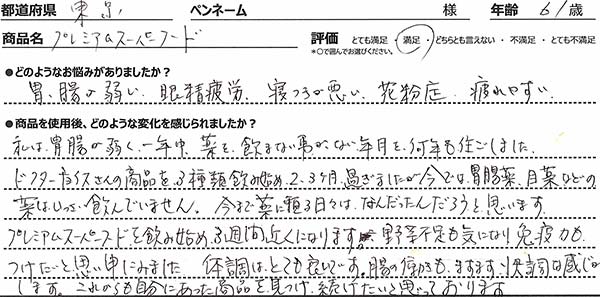 都道府県 東京 ペンネーム 様 年齢 61歳
商品名 プレミアムスーパーフード 評価 とても満足・満足・どちらとも言えない・不満足・とても不満足
*○で囲んでお選びください。
●どのようなお悩みがありましたか?
胃、腸が弱い、眼精疲労、寝つきが悪い、花粉症、疲れやすい、
●商品を使用後、どのような変化を感じられましたか?
私は、胃腸が弱く、一年中、薬を、飲まない事が、ない年月を、何年も往ごしました。
ドクターボイスさんの商品を、3種類飲み始め、2、3ヶ月、過ぎましたが今では、胃腸薬、目薬などの
薬はいっさい飲んでいません。今まで薬に頼る日々は、なんだったんだろうと思います。
プレミアムスーパーフードを飲み始め、3週間近くになります、野菜不足も気になり免疫力も、
つけたいと思い申にみました。体調は、とても良いです。腸の働きも、ますます、快調な感じが
します。これからも自分にあった商品を見つけ、続けたいと思っております